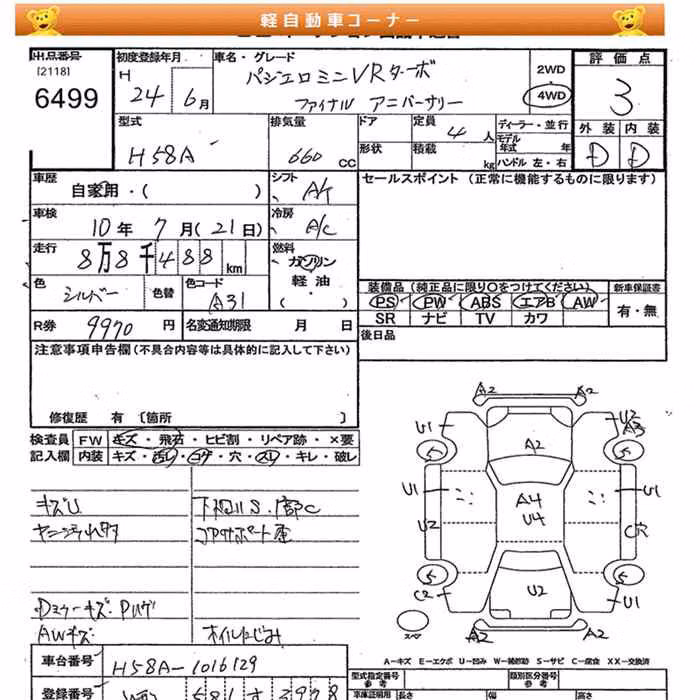 軽自動車コーナー
出品番号
[2118]
6499
初度登録年月
H
24 6月
車名・グレード
パジェロミニVRターボ
ファイナル アニバーサリー
2WD
4WD
評価点
3
外装 内装
D D
型式
H58A
排気量
660 cc
ドア
定員
4人
形状
積載
kg
ディーラー・並行
モデル年式 年
ハンドル 左・右
車歴
自家用・( )
シフト
A/T
セールスポイント (正常に機能するものに限ります)
車検
10年 7月(21日)
冷房
A/C
走行
8万8千488km
燃料
ガソリン
軽油
・( )
色
シルバー
色替
色コード
A31
装備品(純正品に限り○をつけてください)
新車保証書
PS PW ABS エアB AW
SR ナビ TV カワ
有・無
R券
9970円
名変通知期限 月 日
後日品
注意事項申告欄(不具合内容等は具体的に記入して下さい)
修復歴 有 〔箇所 〕
検査員記入欄
FW キズ・飛石・ヒビ割・リペア跡・×要
内装 キズ・汚レ・コゲ・穴・スレ・キレ・破レ
キズU
下回りS・腐C
コアサポート歪
AWキズ
オイルにじみ
A2 A2
U1 U2 A3
5 A2 5
U1 A4 U1
U2 U4 C穴
5 5
C2 U2 U1
スペ
A2 A2
A-キズ E-エクボ U-凹み W-補修跡 S-サビ C-腐食 XX-交換済
車台番号
H58A-1016129
型式指定番号
参考
類別区分番号
参考
登録番号
581
車体証明用
長さ
幅
高さ